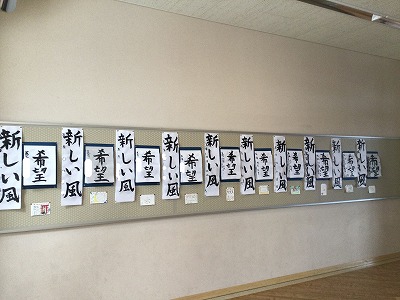 新しい風
希望
新しい風
希望
新しい風
希望
新しい風
希望
新しい風
希望
新しい風
希望
新しい風
希望
新しい風
希望
新しい風
希望
新しい風
希望